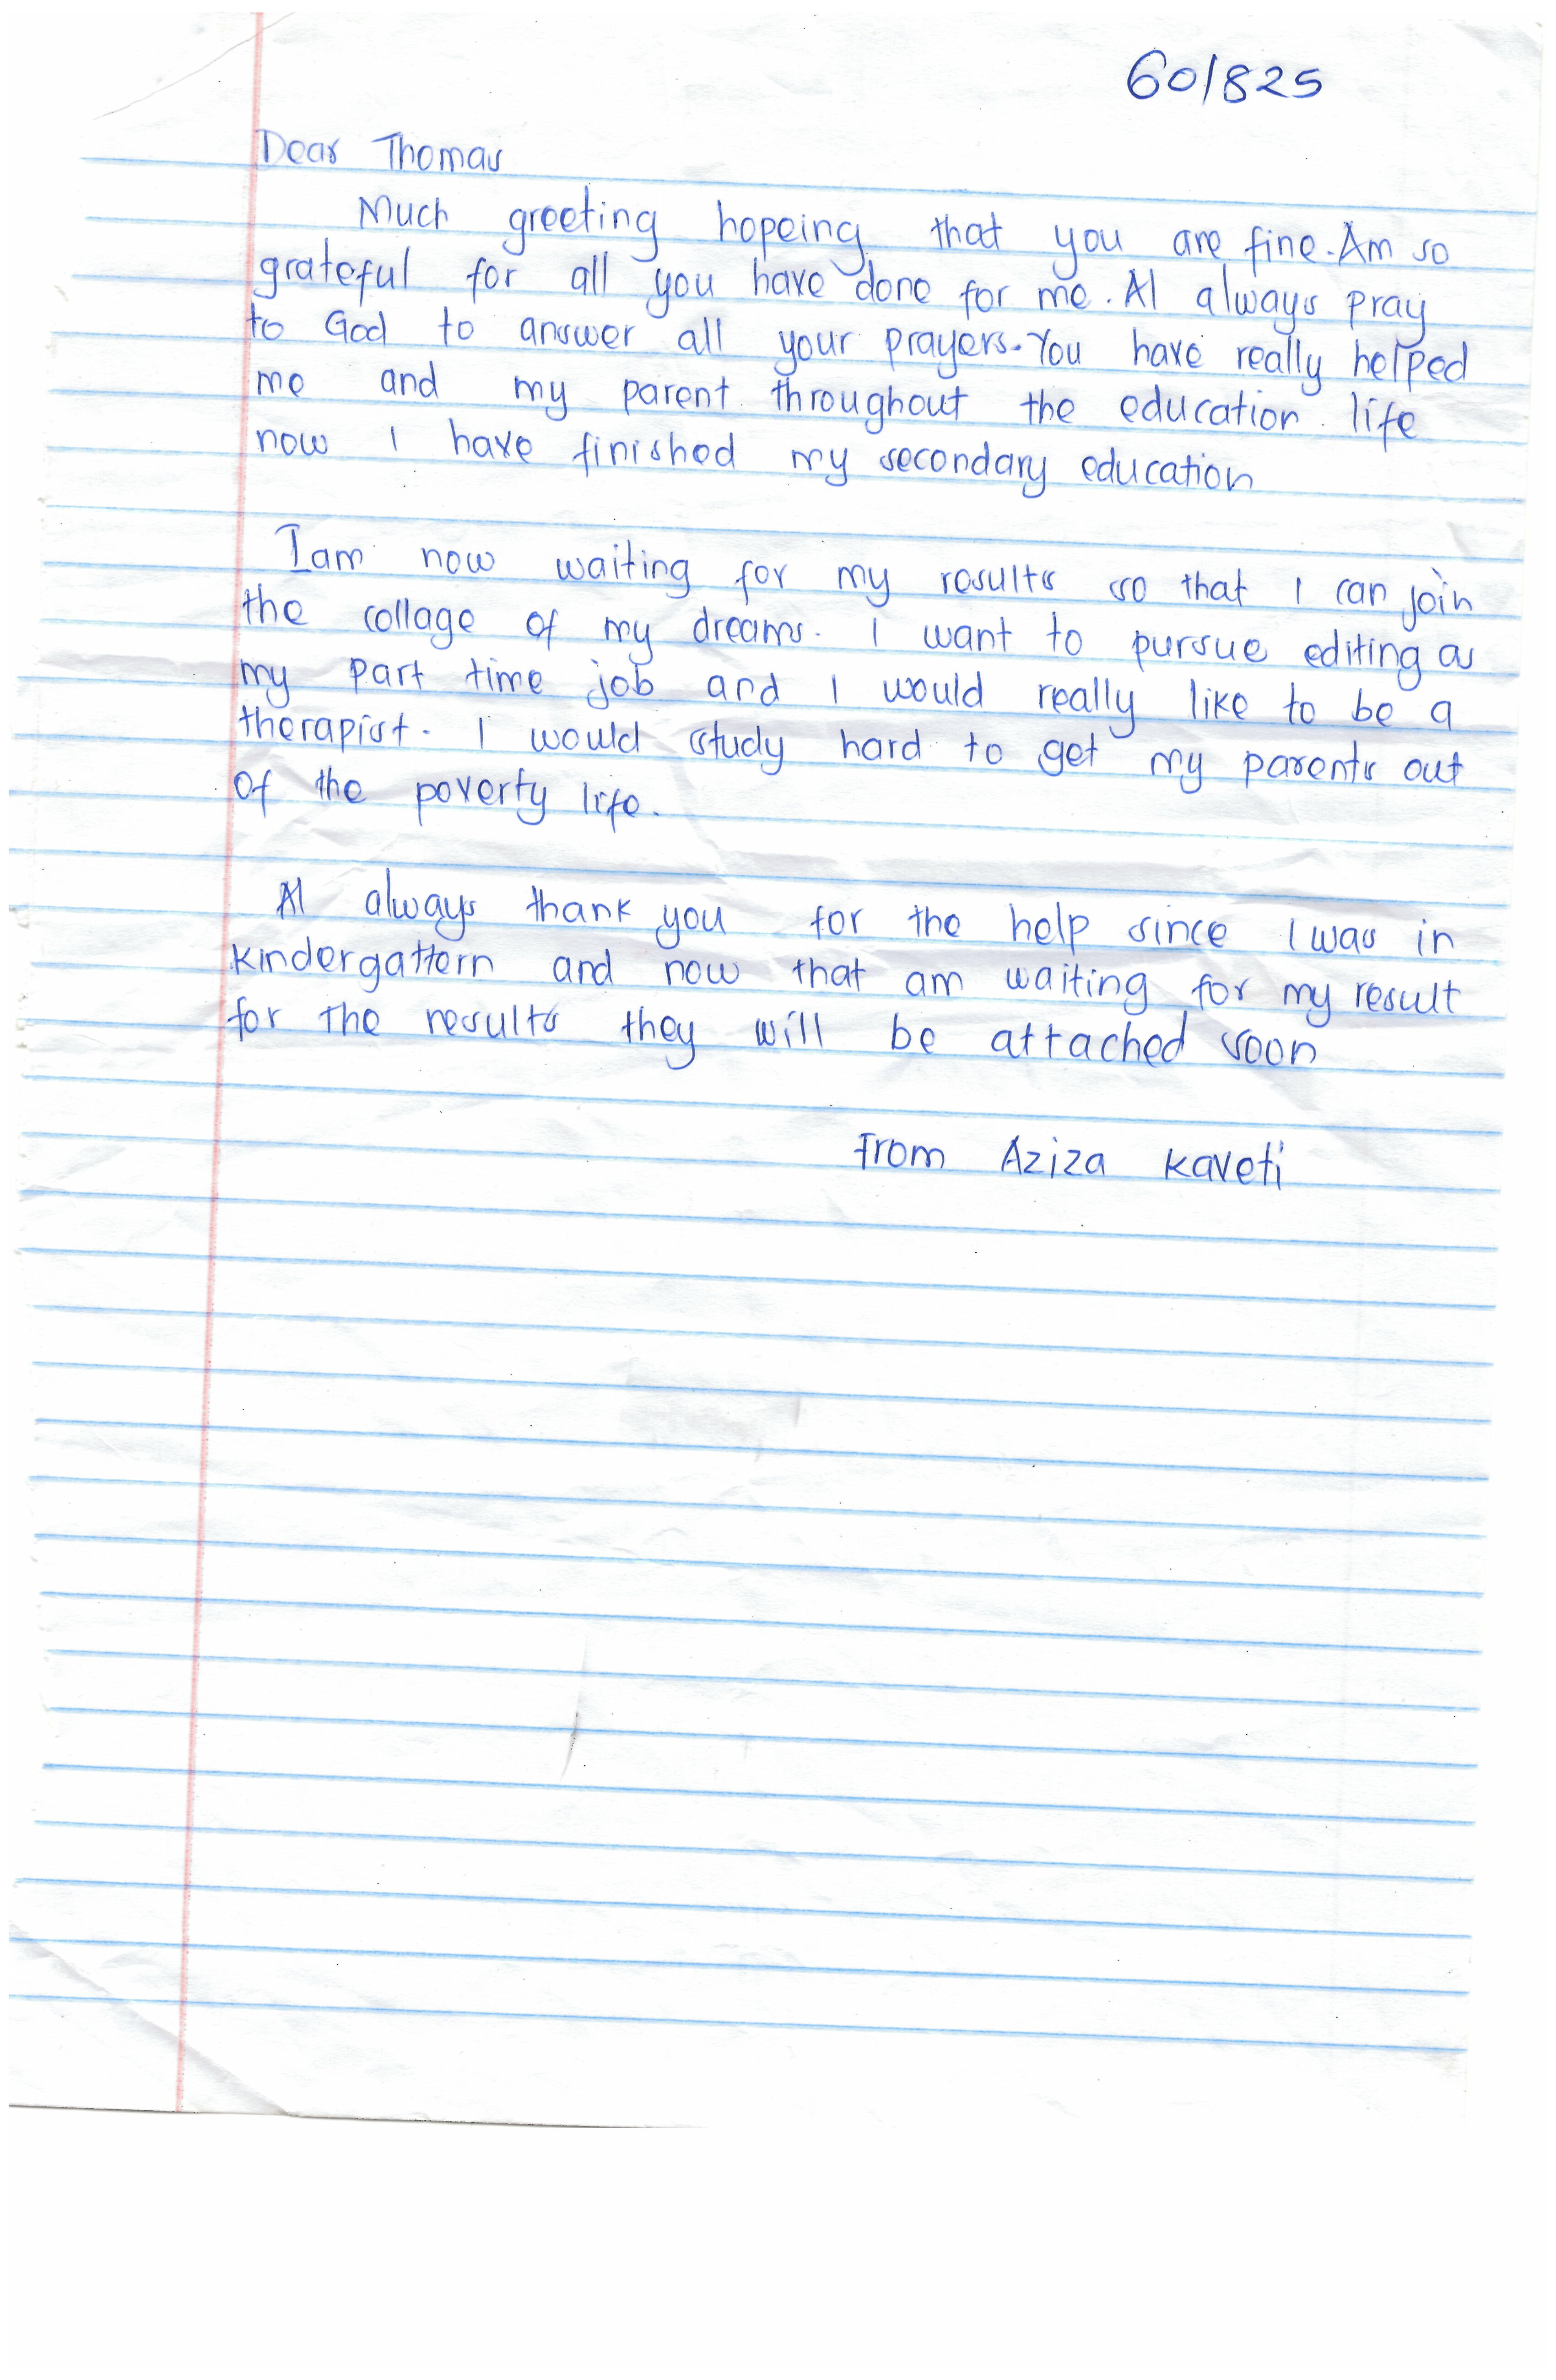 60/825
Dear Thomas
Much greeting hopeing that you are fine. Am so
grateful for all you have done for me. Al always pray
to God to answer all your prayers. You have really helped
me and my parent throughout the education life
now I have finished my secondary education
Iam now waiting for my results so that I can join
the collage of my dreams. I want to pursue editing as
my part time job and I would really like to be a
therapist. I would study hard to get my parents out
of the poverty life.
Al always thank you for the help since I was in
kindergattern and now that am waiting for my result
for the results they will be attached soon
From Aziza Kaveti